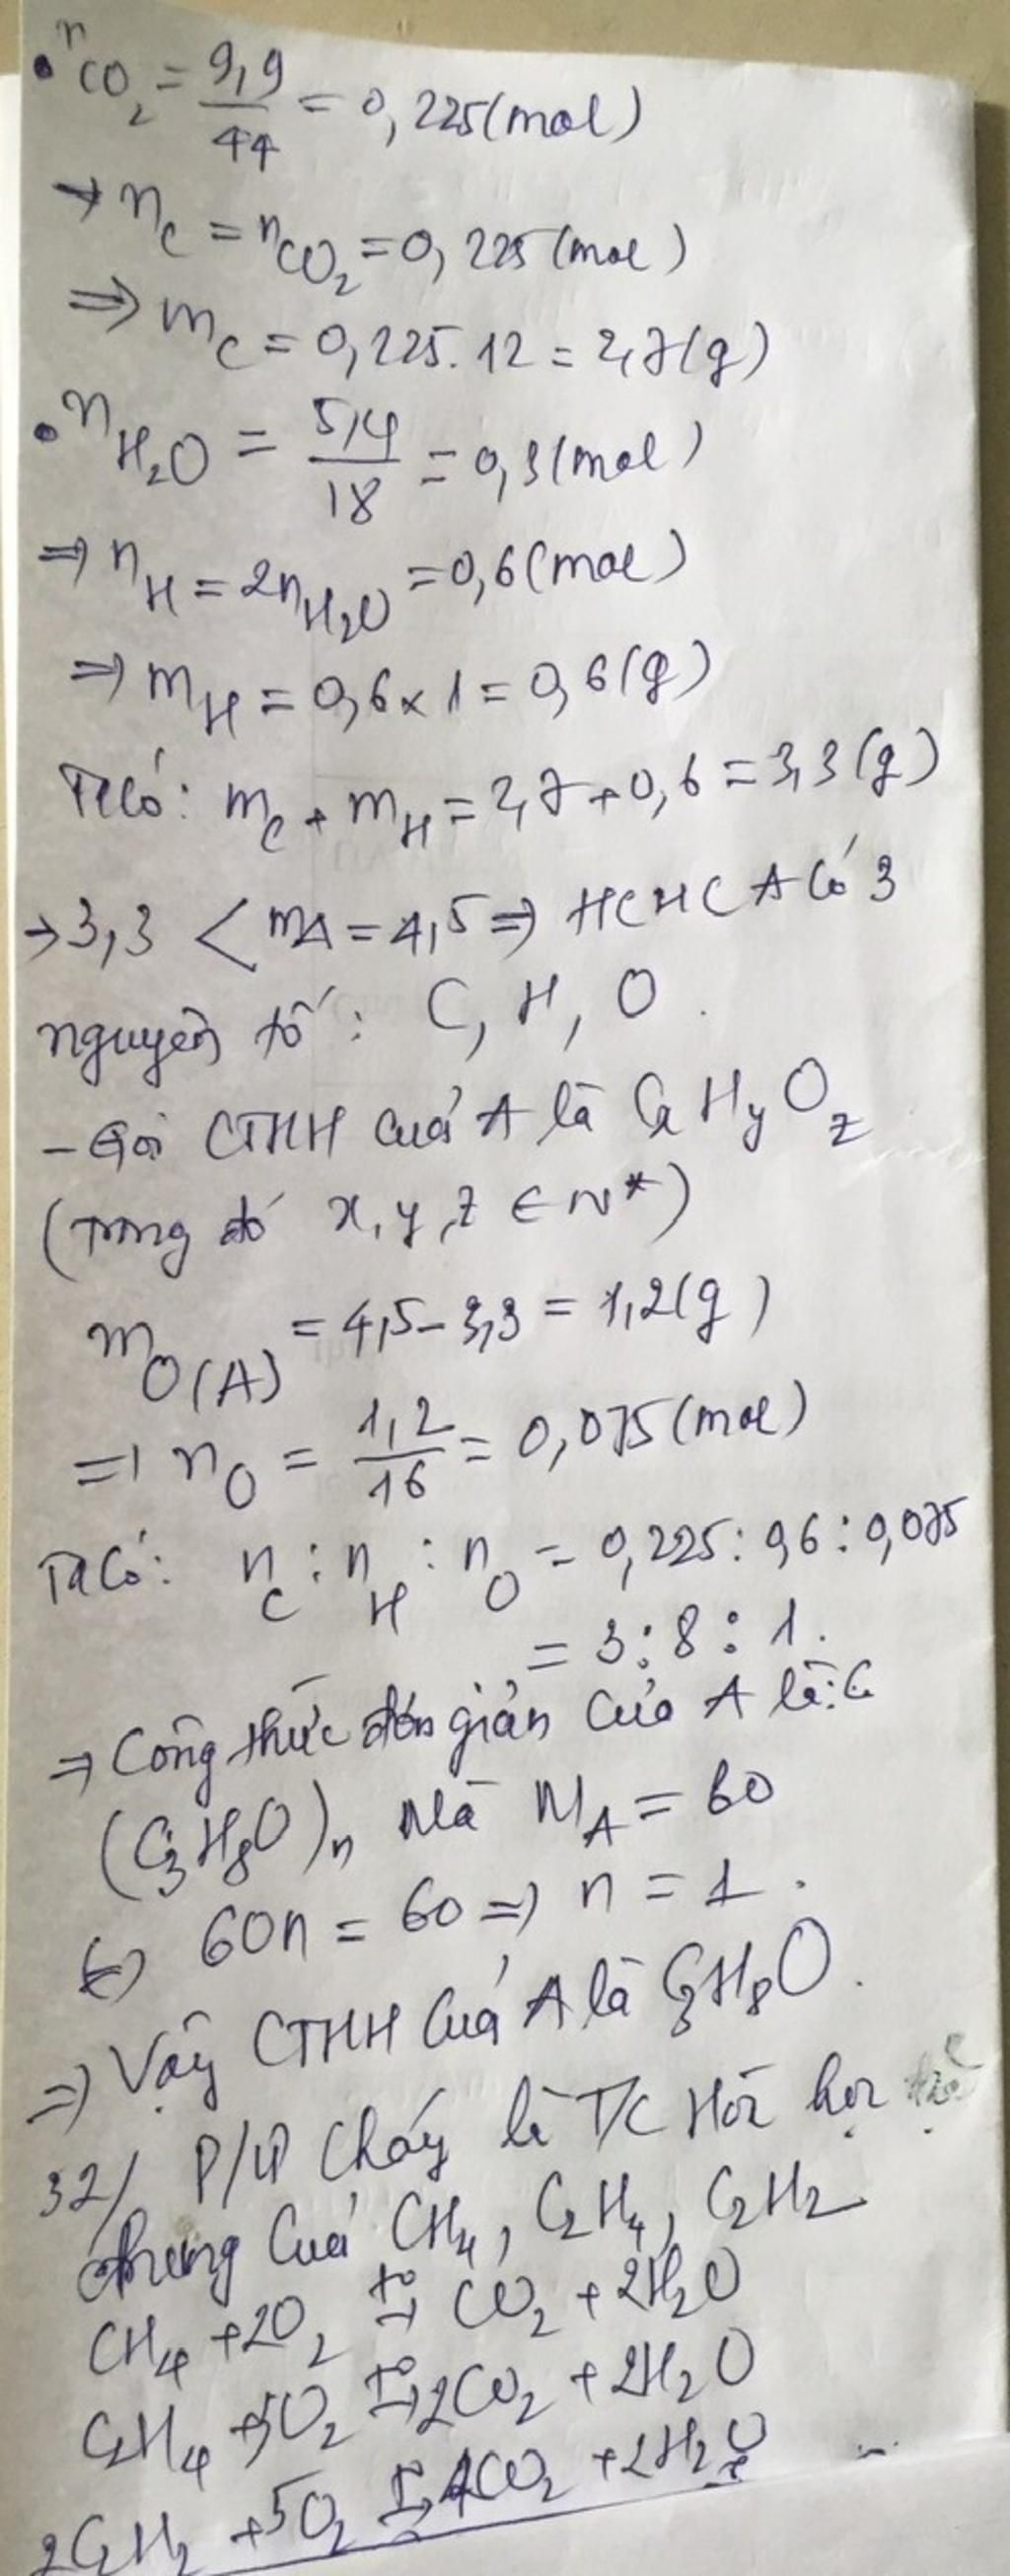 • nCO₂ = 9,9/44 = 0,225 (mol)
→ nC = nCO₂ = 0,225 (mol)
⇒ mC = 0,225.12 = 2,7 (g)
• nH₂O = 5,4/18 = 0,3 (mol)
⇒ nH = 2nH₂O = 0,6 (mol)
⇒ mH = 0,6 x 1 = 0,6 (g)
Ta có: mC + mH = 2,7 + 0,6 = 3,3 (g)
→ 3,3 < mA = 4,5 ⇒ HCHC A có 3
nguyên tố: C, H, O.
- Gọi CTHH của A là CxHyOz
(trong đó x, y, z ∈ N*)
mO(A) = 4,5 - 3,3 = 1,2 (g)
⇒ nO = 1,2/16 = 0,075 (mol)
Ta có: nC : nH : nO = 0,225 : 0,6 : 0,075
= 3 : 8 : 1.
⇒ Công thức đơn giản của A là:
(C₃H₈O)n Mà MA = 60
60n = 60 ⇒ n = 1.
⇒ Vậy CTHH của A là C₃H₈O.
32/ P/Ứ cháy là T/C Hóa học
chung của CH₄, C₂H₄, C₂H₂
CH₄ + 2O₂ t°→ CO₂ + 2H₂O
C₂H₄ + 3O₂ t°→ 2CO₂ + 2H₂O
2C₂H₂ + 5O₂ t°→ 4CO₂ + 2H₂O